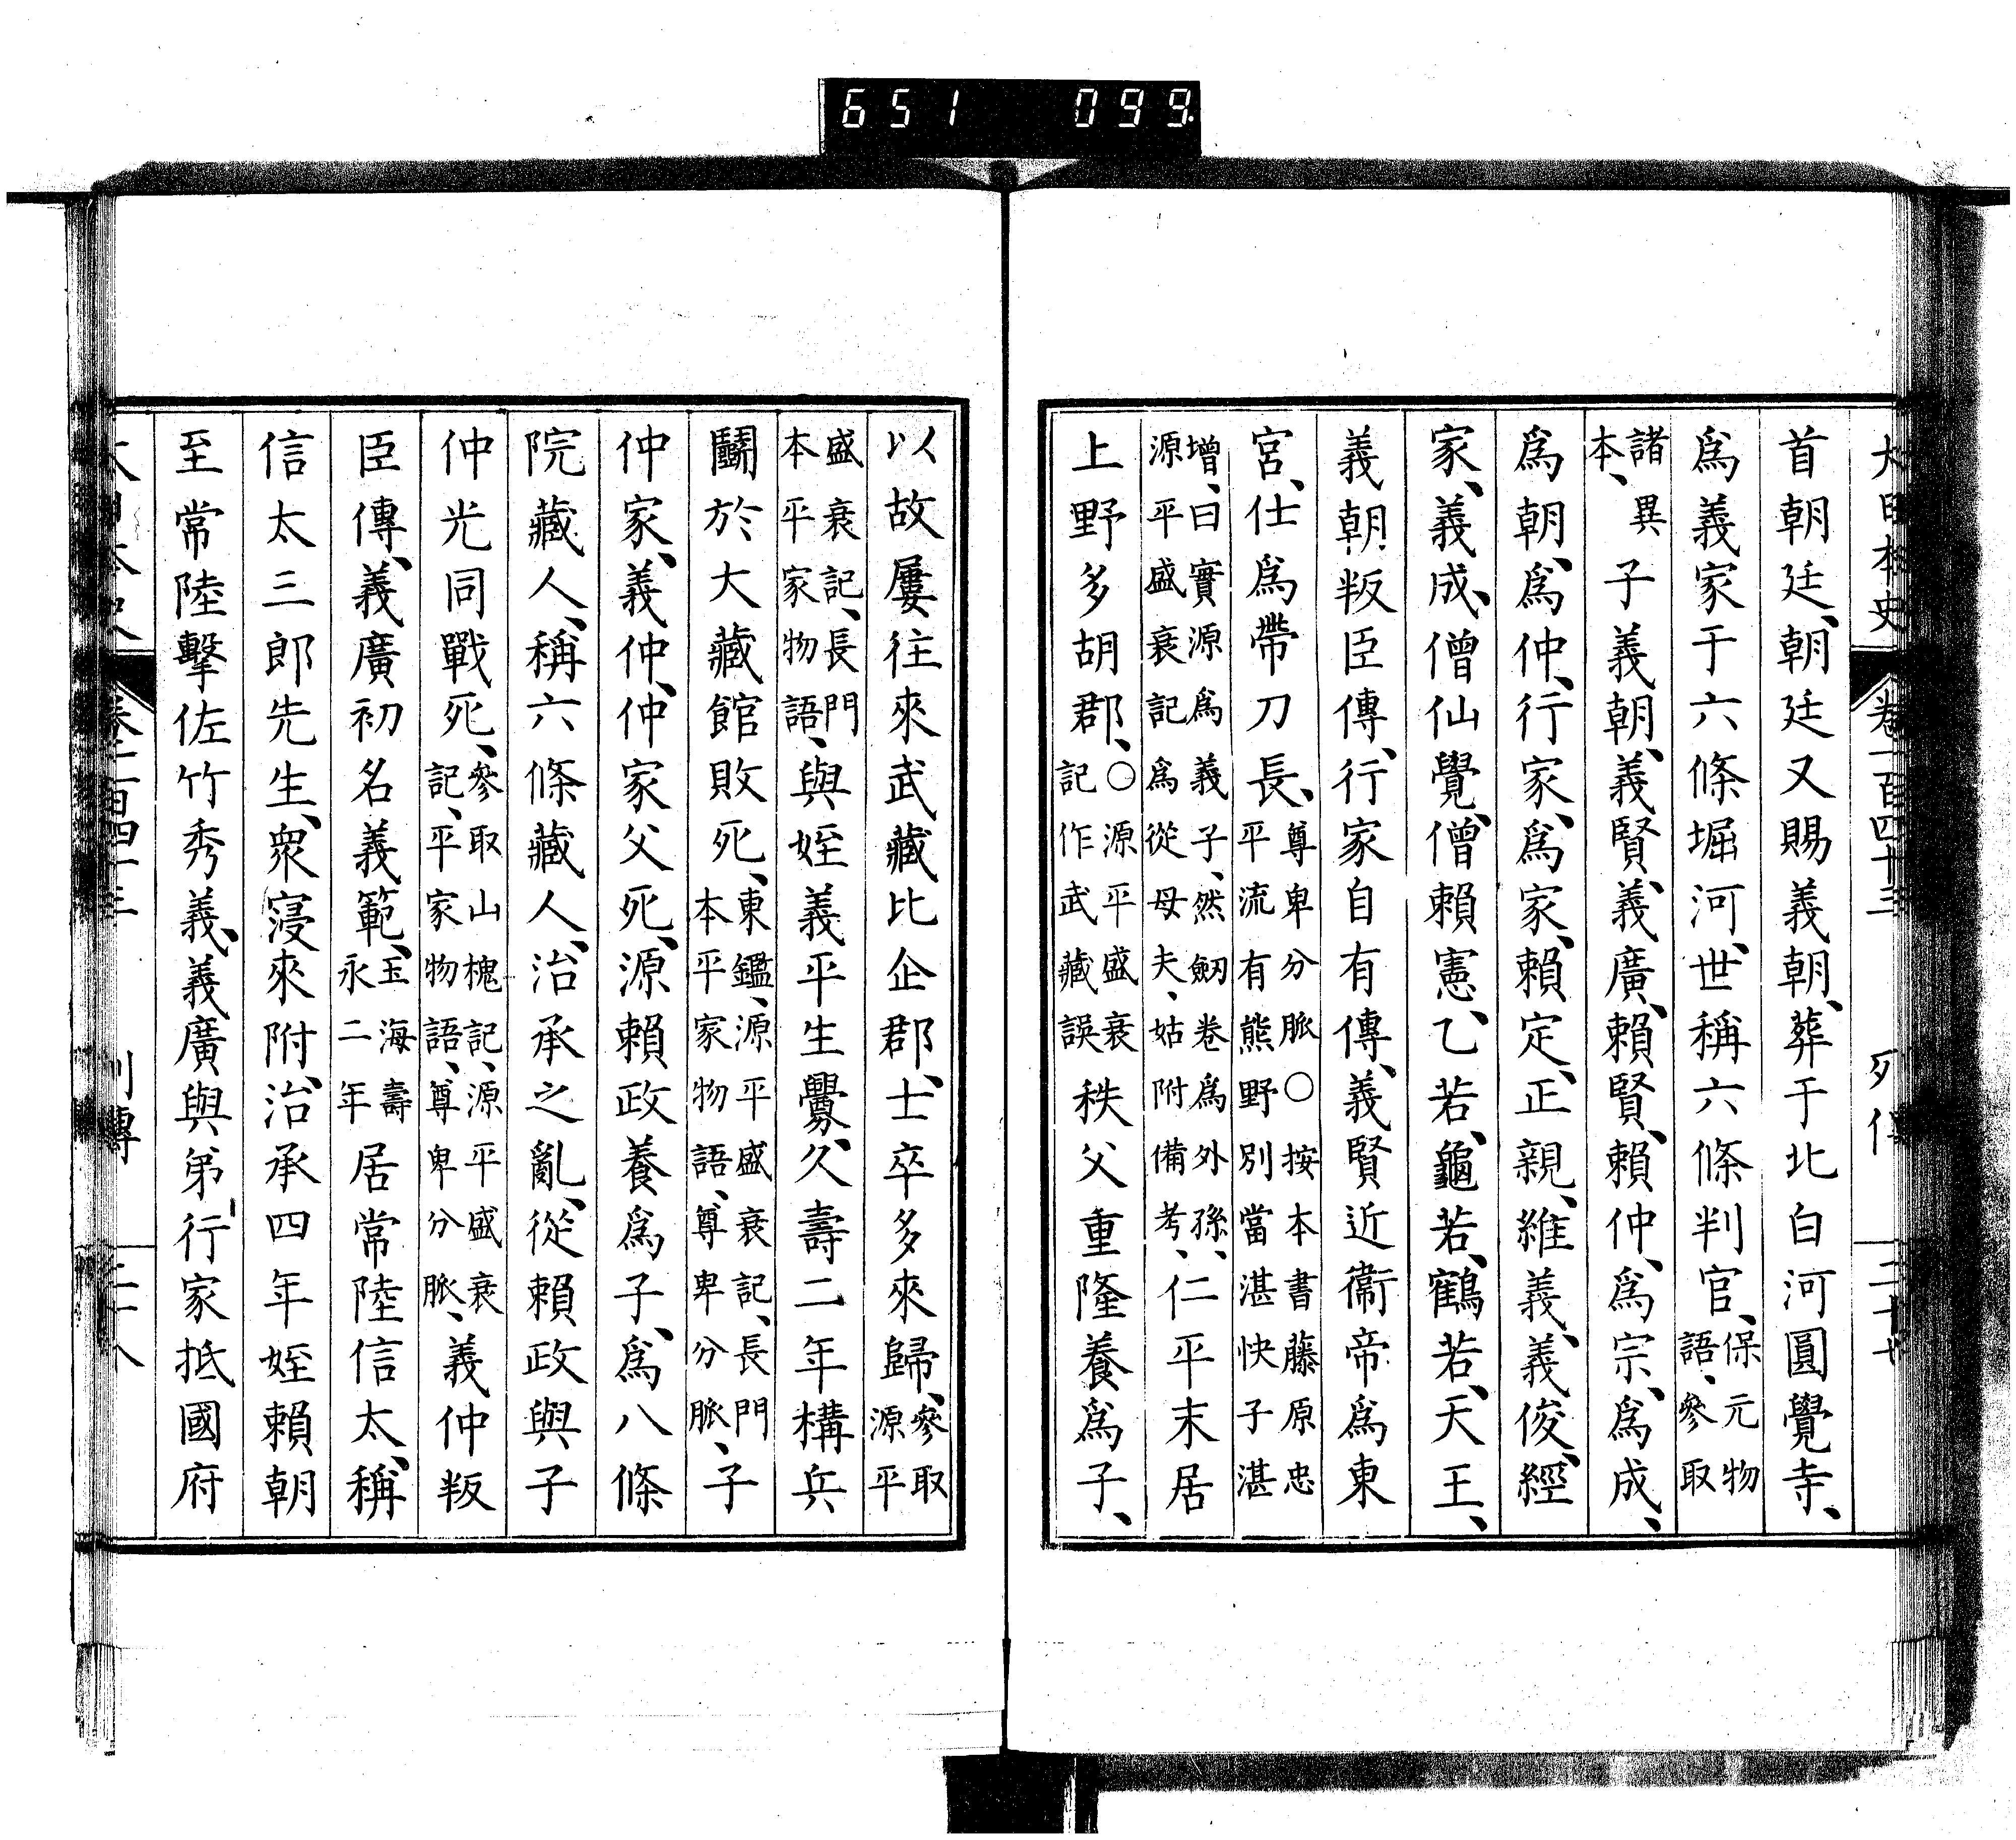 651 099
大日本史 卷一百四十三 列傳 二十七
首朝廷、朝廷又賜義朝、葬于北白河圓覺寺、
爲義家于六條堀河、世稱六條判官、保元物語、參取
諸本、異 子義朝、義賢、義廣、賴賢、賴仲、爲宗、爲成、
爲朝、爲仲、行家、爲家、賴定、正親、維義、義俊、經
家、義成、僧仙覺、僧賴憲、乙若、龜若、鶴若、天王、
義朝叛臣傳、行家自有傳、義賢近衞帝爲東
宮、仕爲帶刀長、尊卑分脈〇按本書藤原忠平流有熊野別當湛快子湛
增、曰實源爲義子、然劒卷爲外孫、源平盛衰記爲從母夫、姑附備考、仁平末居
上野多胡郡、〇源平盛衰記作武藏誤秩父重隆養爲子、
以故屢往來武藏比企郡、士卒多來歸、參取源平
盛衰記、長門本平家物語、與姪義平生釁、久壽二年構兵
鬬於大藏館敗死、東鑑、源平盛衰記、長門本平家物語、尊卑分脈、子
仲家、義仲、仲家父死、源賴政養爲子、爲八條
院藏人、稱六條藏人、治承之亂、從賴政與子
仲光同戰死、參取山槐記、源平盛衰記、平家物語、尊卑分脈、義仲叛
臣傳、義廣初名義範、玉海壽永二年居常陸信太、稱
信太三郎先生、衆寖來附、治承四年姪賴朝
至常陸擊佐竹秀義、義廣與弟行家抵國府
大日本史 卷一百四十三 列傳 二十八